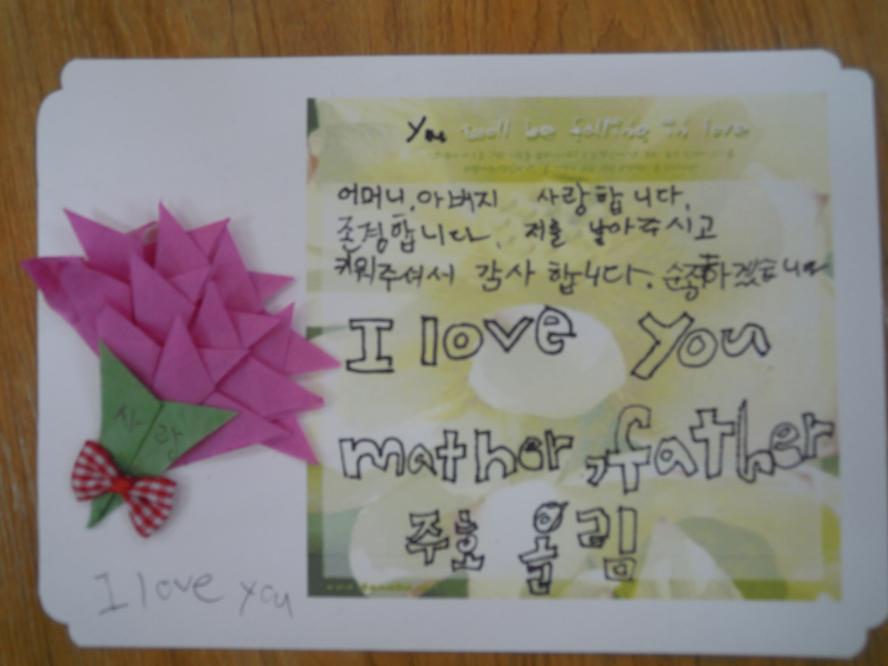 You will be falling in love
어머니, 아버지 사랑합니다.
존경합니다. 저를 낳아주시고
키워주셔서 감사 합니다. 순종하겠습니다
I love You
mather, father
주호 올림
사랑
I love you